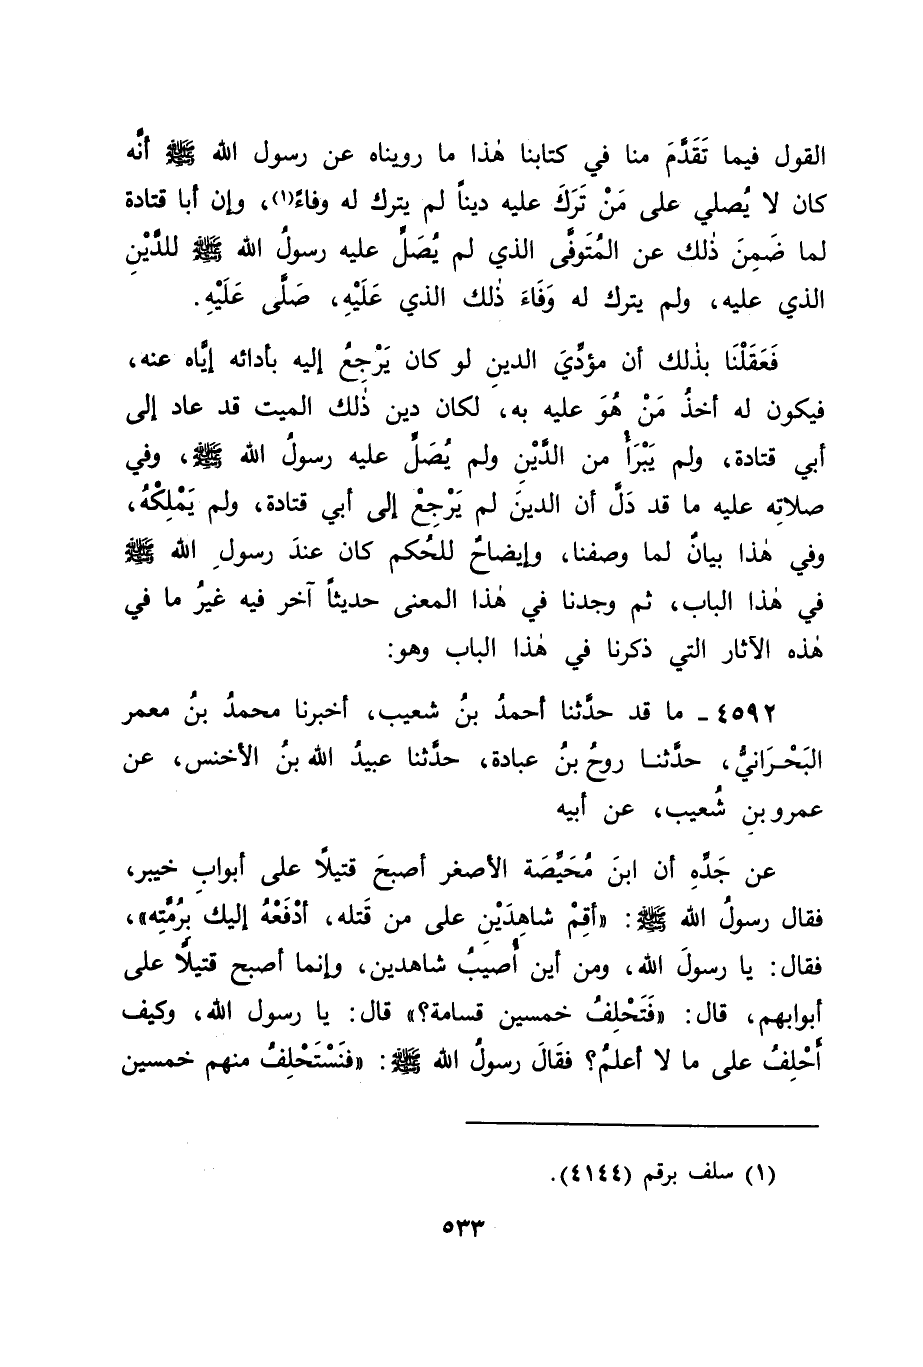 القول فيما تَقَدَّمَ منا في كتابنا هٰذا ما رويناه عن رسول الله ﷺ أنَّه
كان لا يُصلي على مَنْ تَرَكَ عليه ديناً لم يترك له وفاءً(١)، وإن أبا قتادة
لما ضَمِنَ ذٰلك عن المُتَوفَّى الذي لم يُصَلِّ عليه رسولُ الله ﷺ للدَّيْنِ
الذي عليه، ولم يترك له وَفَاءَ ذٰلك الذي عَلَيْهِ، صَلَّى عَلَيْهِ.
فَعَقَلْنَا بذٰلك أن مؤدِّيَ الدينِ لو كان يَرْجِعُ إليه بأدائه إيَّاه عنه،
فيكون له أخذُ مَنْ هُوَ عليه به، لكان دين ذٰلك الميت قد عاد إلى
أبي قتادة، ولم يَبْرَأْ من الدَّيْنِ ولم يُصَلِّ عليه رسولُ الله ﷺ، وفي
صلاتِه عليه ما قد دَلَّ أن الدينَ لم يَرْجِعْ إلى أبي قتادة، ولم يَمْلِكْهُ،
وفي هٰذا بيانٌ لما وصفنا، وإيضاحٌ للحُكم كان عندَ رسولِ الله ﷺ
في هٰذا الباب، ثم وجدنا في هٰذا المعنى حديثاً آخر فيه غيرُ ما في
هٰذه الآثار التي ذكرنا في هٰذا الباب وهو:
٤٥٩٢ ـ ما قد حدَّثنا أحمدُ بنُ شعيب، أخبرنا محمدُ بنُ معمر
البَحْرَانيُّ، حدَّثنا روحُ بنُ عبادة، حدَّثنا عبيدُ الله بنُ الأخنس، عن
عمرو بنِ شُعيب، عن أبيه
عن جَدِّهِ أن ابنَ مُحَيِّصَة الأصغر أصبحَ قتيلاً على أبوابِ خيبر،
فقال رسولُ الله ﷺ: «أقِمْ شاهِدَيْنِ على من قَتله، أدْفَعْهُ إليك بِرُمَّتِه»،
فقال: يا رسولَ الله، ومن أين أُصيبُ شاهدين، وإنما أصبح قتيلاً على
أبوابهم، قال: «فَتَحْلِفُ خمسين قسامة؟» قال: يا رسول الله، وكيف
أَحْلِفُ على ما لا أعلمُ؟ فقَالَ رسولُ الله ﷺ: «فنَسْتَحْلِفُ منهم خمسين
(١) سلف برقم (٤١٤٤).
٥٣٣